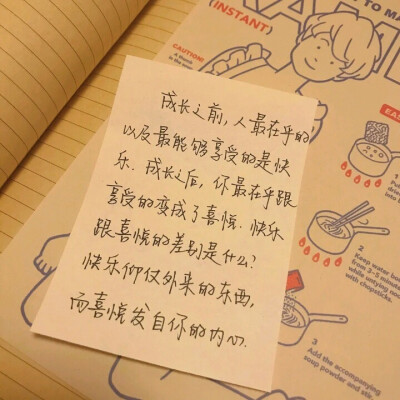 成长之前,人最在乎的
以及最能够享受的是快
乐.成长之后,你最在乎跟
享受的变成了喜悦.快乐
跟喜悦的差别是什么?
快乐仰仗外来的东西,
而喜悦发自你的内心.
(INSTANT)
TO MA
CAUTION!
EAS
2
Keep water bo
from 3~5 minute
while untying noo
with chopsticks.
3
Add the accompanying
soup powder and stir.